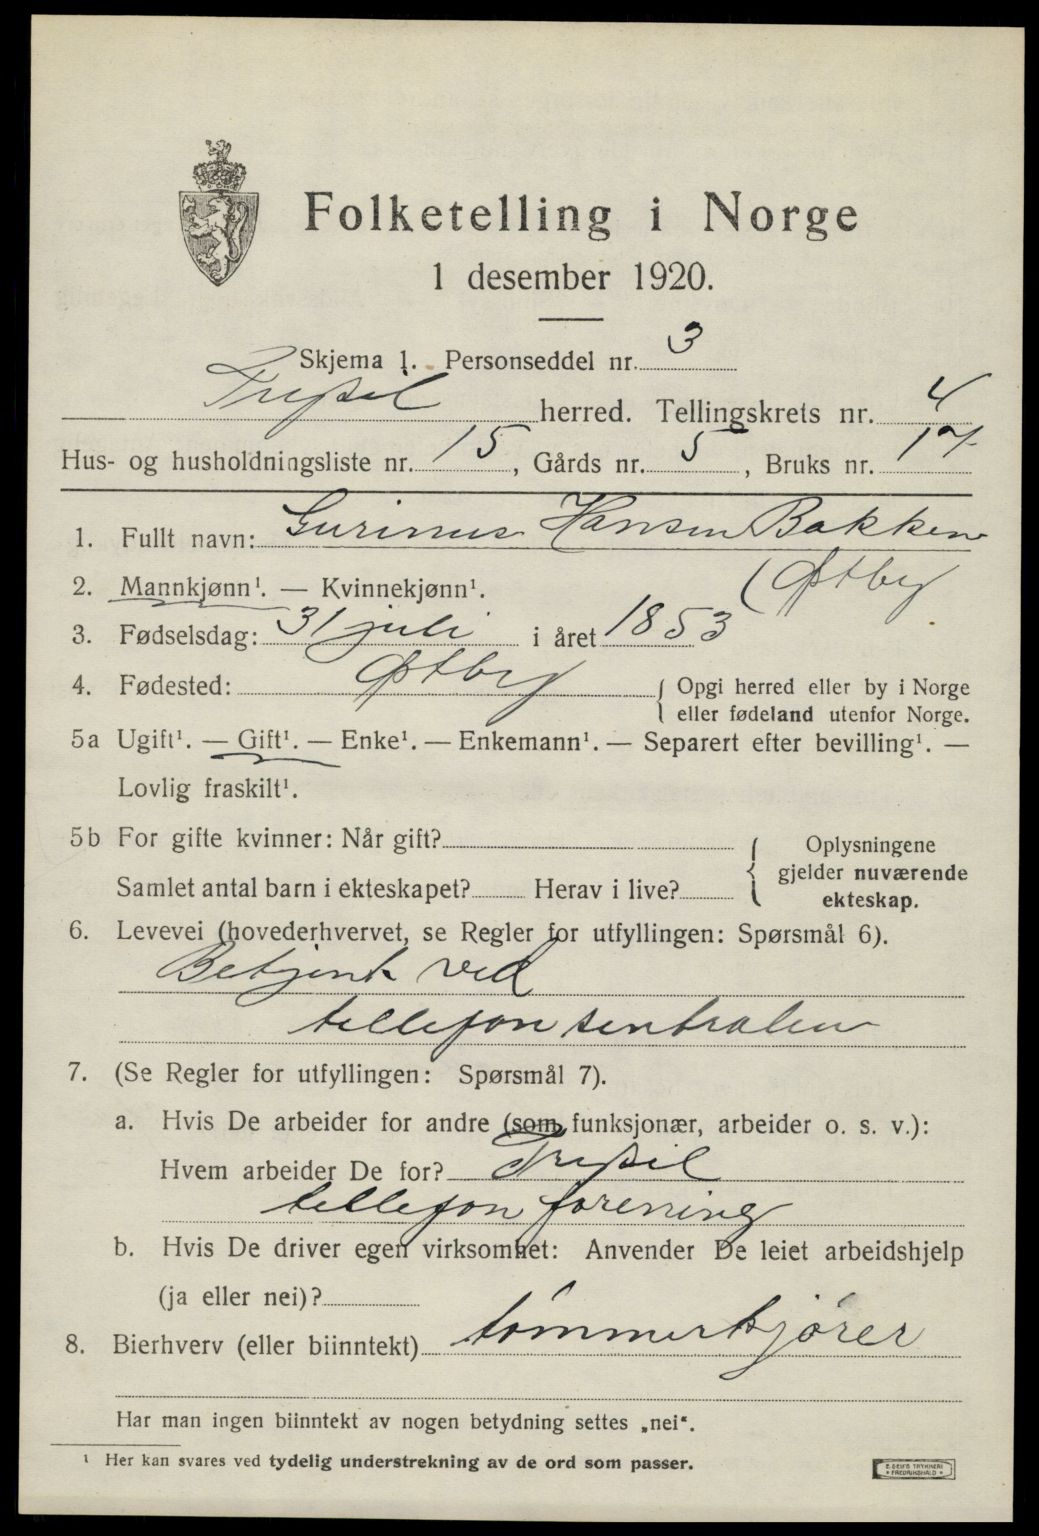 Folketelling i Norge
1 desember 1920.
Skjema 1. Personseddel nr. 3
Trysil herred. Tellingskrets nr. 4
Hus- og husholdningsliste nr. 15, Gårds nr. 5, Bruks nr. 17
1. Fullt navn: Gurinus Hansen Bakken
2. Mannkjønn¹. — Kvinnekjønn¹. (Østby
3. Fødselsdag: 31 juli i året 1853
4. Fødested: Østby { Opgi herred eller by i Norge
eller fødeland utenfor Norge.
5a Ugift¹. — Gift¹. — Enke¹. — Enkemann¹. — Separert efter bevilling¹. —
Lovlig fraskilt¹.
5b For gifte kvinner: Når gift? { Oplysningene
gjelder nuværende
Samlet antal barn i ekteskapet? Herav i live? ekteskap.
6. Levevei (hovederhvervet, se Regler for utfyllingen: Spørsmål 6).
Betjent ved
tellefonsentralen
7. (Se Regler for utfyllingen: Spørsmål 7).
a. Hvis De arbeider for andre (som funksjonær, arbeider o. s. v.):
Hvem arbeider De for? Trysil
tellefon forening
b. Hvis De driver egen virksomhet: Anvender De leiet arbeidshjelp
(ja eller nei)?
8. Bierhverv (eller biinntekt) tømmerkjører
Har man ingen biinntekt av nogen betydning settes „nei“.
¹ Her kan svares ved tydelig understrekning av de ord som passer.
E. SEMS TRYKKERI
• FREDRIKSHALD •